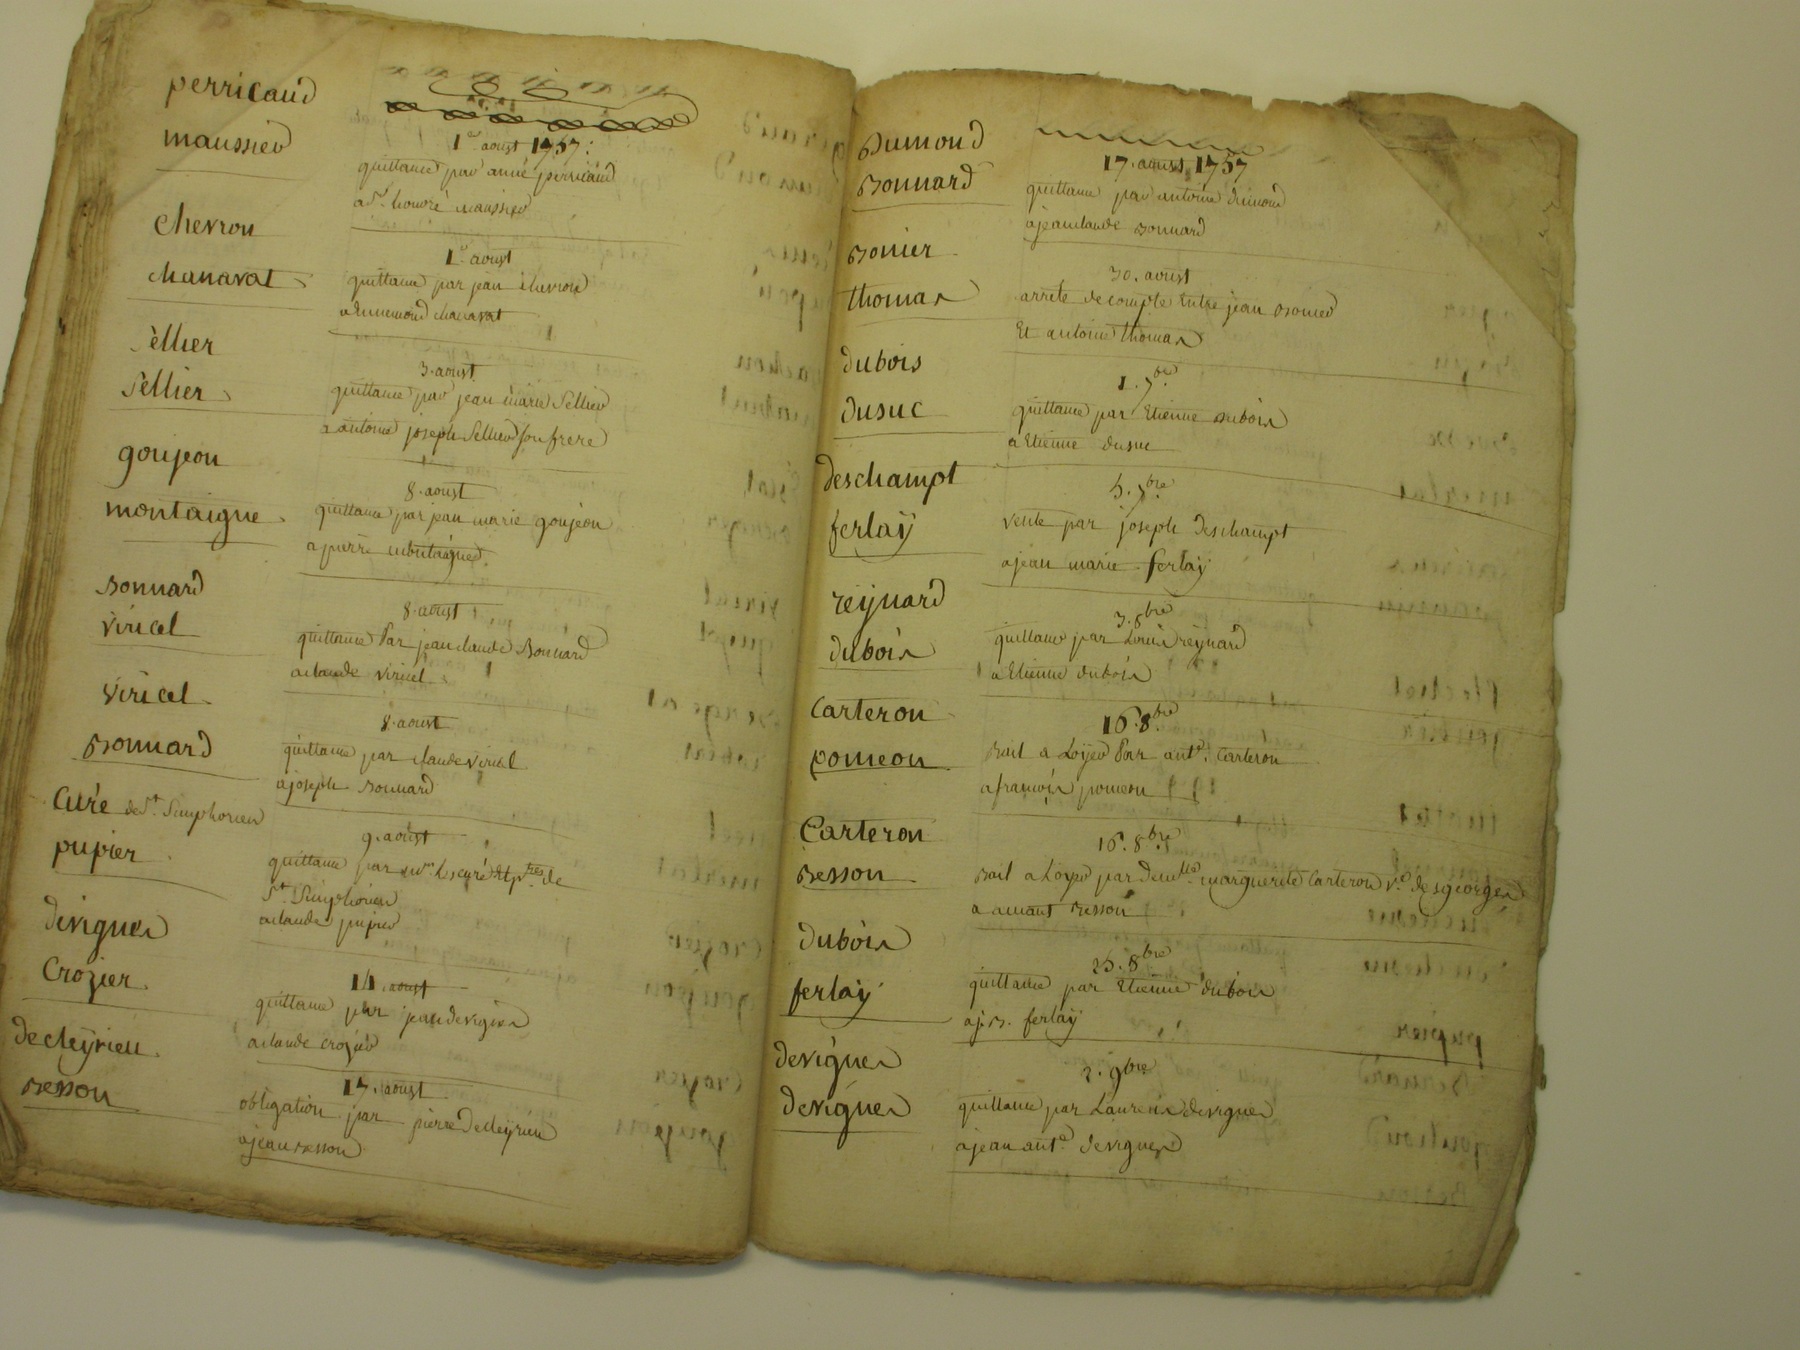 perricaud
maussier
1er aoust 1757:
quittance par anne perricaud
a Sr. honoré maussier
Chevron
chanavat
1er aoust
quittance par jean chevron
a Ennemond chanavat
Sellier
Sellier
3. aoust
quittance par jean marie Sellier
a antoine joseph Sellier son frere
goujeon
montaigne
8. aoust
quittance par jean marie goujeon
a pierre montaigne
Bonnard
Viricel
8. aoust
quittance Par jean claude Bonnard
a claude Viricel
Viricel
Bonnard
8. aoust
quittance par claude Viricel
a joseph Bonnard
Curé de St. Simphorien
pupier
9. aoust
quittance par Les curé et ptres de
St. Simphorien
a claude pupier
devignes
Crozier
14. aoust
quittance par jean devignes
a claude crozier
decleyrieu
Besson
17. aoust
obligation par pierre decleyrieu
a jean Besson
Dumond
Bonnard
17. aoust 1757
quittance par antoine dumond
a jean claude Bonnard
Bonier
thomas
30. aoust
arrete de compte Entre jean Bonier
Et antoine thomas
dubois
dusuc
1. 7bre
quittance par Etienne dubois
a Etienne dusuc
deschampt
ferlaÿ
5. 7bre
vente par joseph deschampt
a jean marie ferlaÿ
reÿnard
dubois
3. 8bre
quittance par Louis reÿnard
a Etienne dubois
Carteron
pomeon
16. 8bre
Bail a Loyer Par ant.e Carteron
a francois pomeon
Carteron
Besson
16. 8bre
Bail a Loyer par demlle marguerite Carteron Ve desgeorges
a amant Besson
dubois
ferlaÿ
25. 8bre
quittance par Etienne dubois
a j. B. ferlaÿ
devignes
devignes
2. 9bre
quittance par Laurens devignes
a jean ant.e devignes